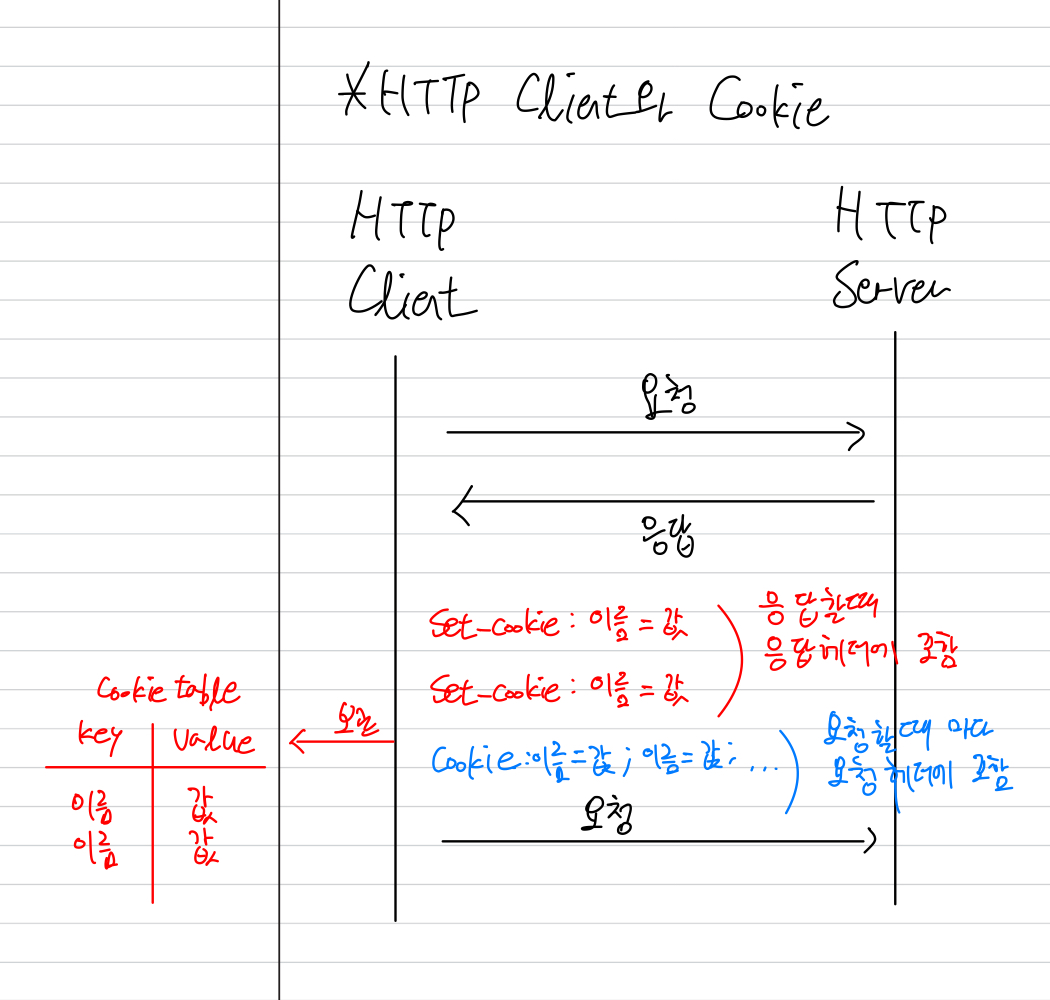 *HTTP Client와 Cookie
HTTP
Client
HTTP
Server
요청
응답
Set-Cookie : 이름 = 값
Set-Cookie : 이름 = 값
응답할때
응답헤더에 포함
Cookie table
key value
이름 값
이름 값
보관
Cookie:이름=값; 이름=값; ...
요청할때 마다
요청헤더에 포함
요청